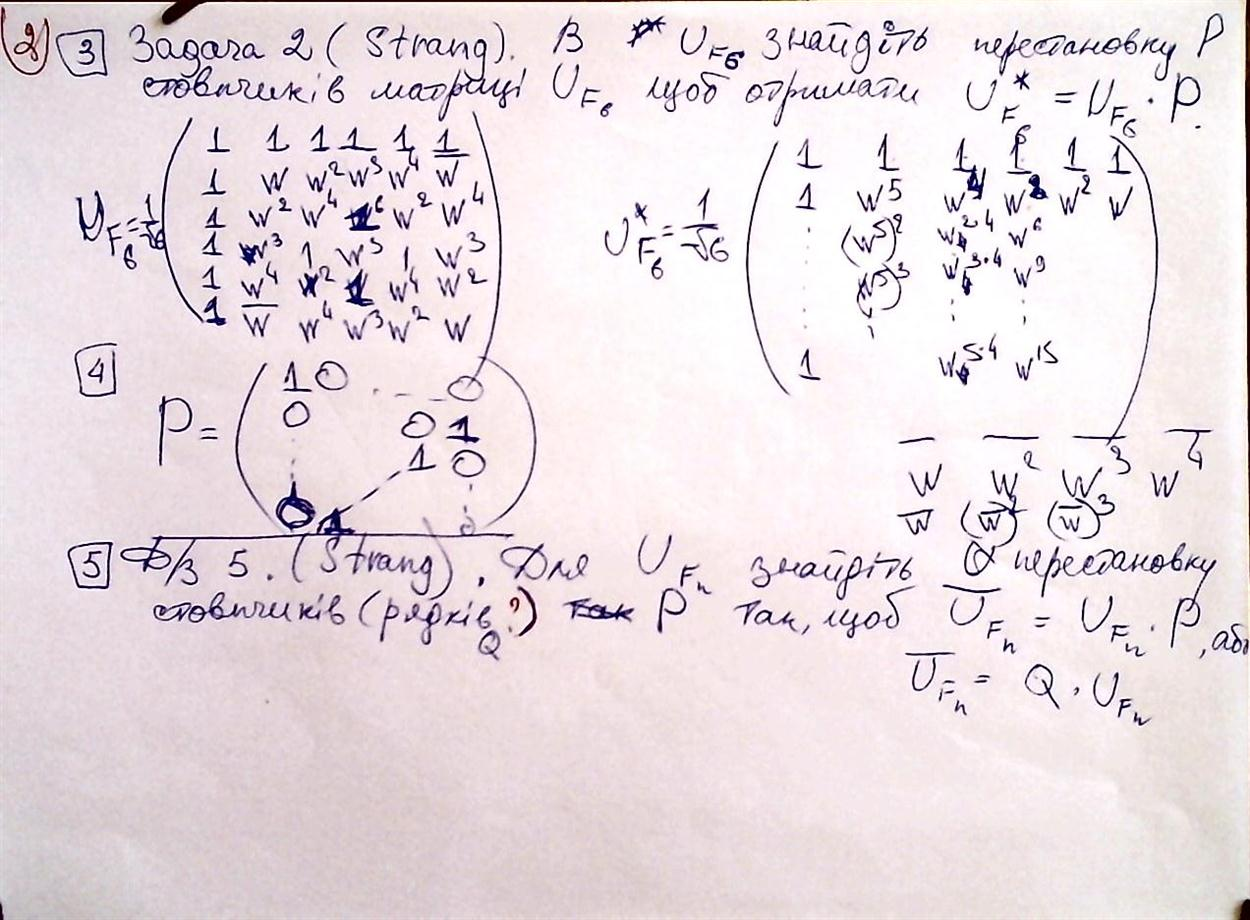 2) 3 Задача 2 (Strang). В U_F₆ знайдіть перестановку P
стовпчиків матриці U_F₆ щоб отримати U*_F₆ = U_F₆ · P.
U_F₆ = 1/√6
1 1 1 1 1 1
1 w w² w³ w⁴ w̅
1 w² w⁴ 1 w² w⁴
1 w³ 1 w³ 1 w³
1 w⁴ w² 1 w⁴ w²
1 w̅ w⁴ w³ w² w
U*_F₆ = 1/√6
1 1 1 1 1 1
1 w⁵ w⁴ w³ w² w
(w⁵)² w²·⁴ w⁶
(w⁵)³ w³·⁴ w⁹
1 w⁵·⁴ w¹⁵
4
P =
1 0 . - - 0
0 0 1
1 0
0 1 0
w w² w³ w⁴
w̅ (w̅)² (w̅)³
5 Д/з 5. (Strang). Для U_Fₙ знайдіть Q перестановку
стовпчиків (рядків Q?) P так, щоб U̅_Fₙ = U_Fₙ · P, або
U̅_Fₙ = Q · U_Fₙ